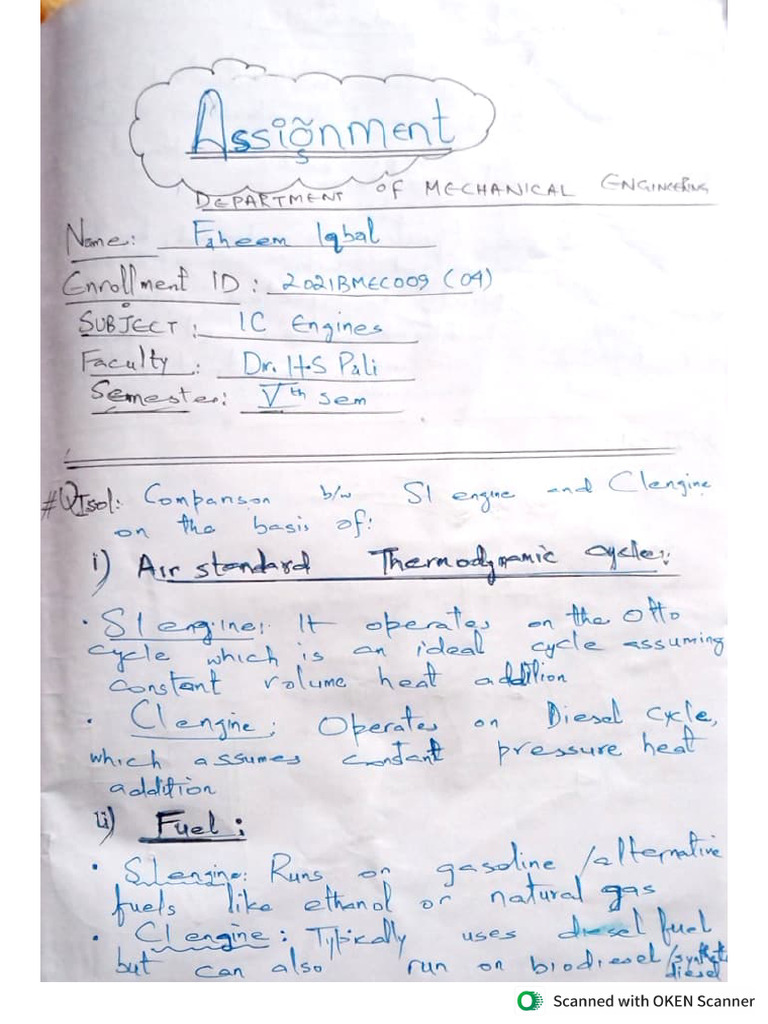 Assignment
DEPARTMENT OF MECHANICAL ENGINEERING
Name: Faheem Iqbal
Enrollment ID: 2021BMEC009 (04)
SUBJECT: IC Engines
Faculty: Dr. H.S Pali
Semester: Vth sem
#Q1sol: Comparison b/w SI engine and CI engine
on the basis of:
i) Air standard Thermodynamic cycle:
· SI engine: It operates on the Otto
cycle which is an ideal cycle assuming
constant volume heat addition
· CI engine: Operates on Diesel cycle,
which assumes constant pressure heat
addition
ii) Fuel:
· SI engine: Runs on gasoline /alternative
fuels like ethanol or natural gas
· CI engine: Typically uses diesel fuel
but can also run on biodiesel /synthetic
diesel
Scanned with OKEN Scanner